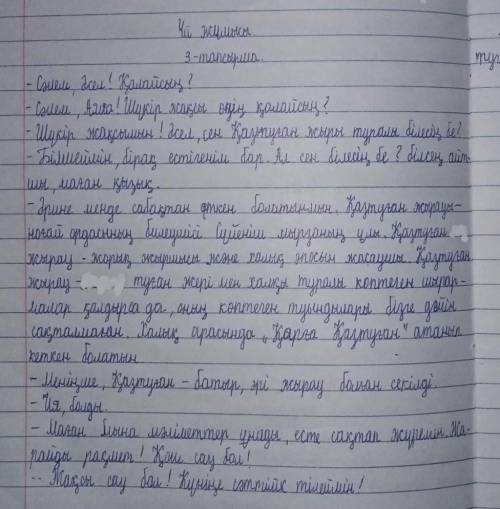 Үй жұмысы.
3-тапсырма.
- Сәлем, Әсел! Қалайсың?
- Сәлем, Айла! Шүкір жақсы өзің қалайсың?
- Шүкір жақсымын! Әсел, сен Қазтуған жыры туралы білесің бе?
- Білмеймін, бірақ естігенім бар. Ал сен білесің бе? білсең айт-
шы, маған қызық.
- Әрине менде сабақтан өткен болатынмын. Қазтуған жырауы-
ноғай ордасының билеушісі Сүйеніш мырзаның ұлы. Қазтуған
жырау - жорық жыршысы және халық эпосын жасаушы. Қазтуған
жырау - туған жері мен халқы туралы көптеген шығар-
малар қалдырса да, оның көптеген туындылары бізге дейін
сақталмаған. Халық арасында "Қарға Қазтуған" атанып
кеткен болатын.
- Меніңше, Қазтуған - батыр, әрі жырау болған секілді.
- Ия, болды.
- Маған мына мәліметтер ұнады, есте сақтап жүремін. Жа-
райды рақмет! Қош сау бол!
-- Жақсы сау бол! Күніңе сәттілік тілеймін!